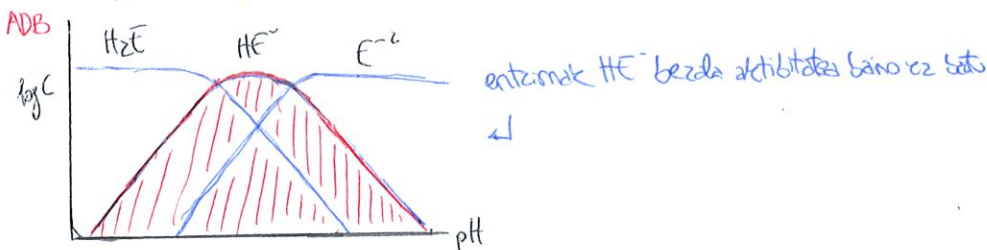 ADB
H₂E HE⁻ E⁻²
log C
entzimak HE⁻ bezela aktibitatea baino ez batu
pH